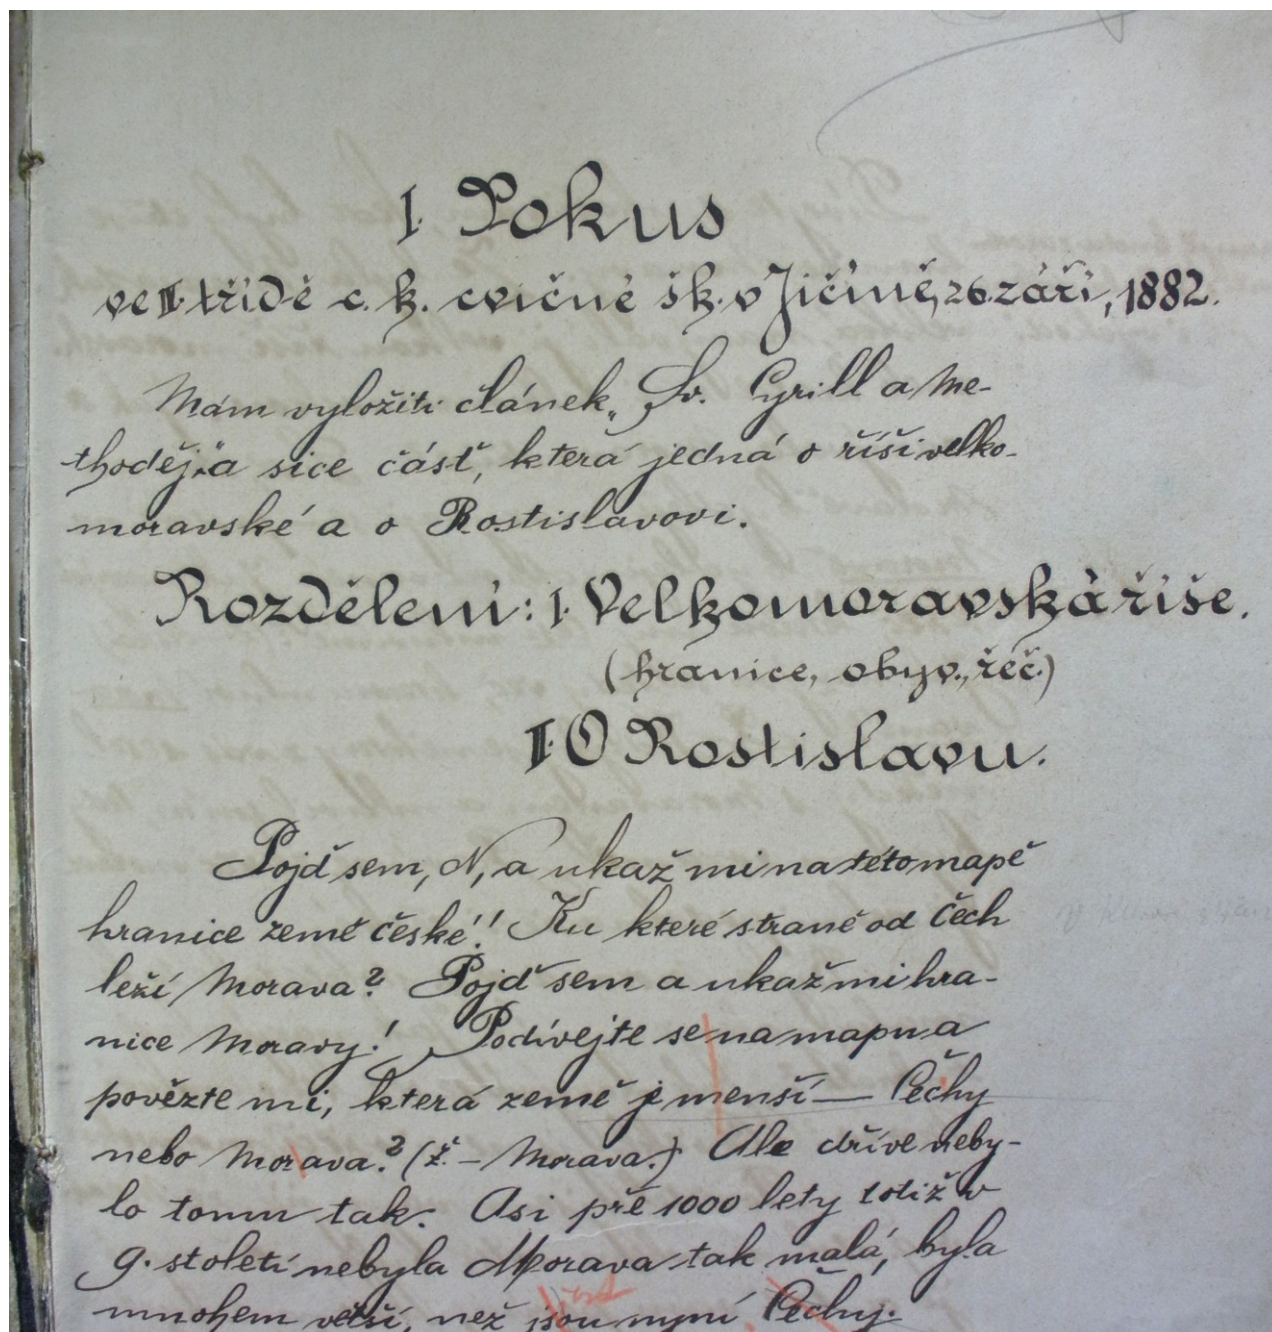 I. Pokus
ve II. třídě c. k. cvičné šk. v Jičíně, 26. září, 1882.
Mám vyložiti článek „Sv. Cyrill a Me-
thoděj“ a sice část, která jedná o říši velko-
moravské a o Rostislavovi.
Rozdělení: I. Velkomoravská říše.
(hranice, obyv., řeč.)
II. O Rostislavu.
Pojď sem, N, a ukaž mi na této mapě
hranice země české! Ku které straně od Čech
leží Morava? Pojď sem a ukaž mi hra-
nice Moravy! Podívejte se na mapu a
povězte mi, která země je menší — Čechy
nebo Morava? (ž. – Morava.) Ale dříve neby-
lo tomu tak. Asi pře 1000 lety totiž v
9. století nebyla Morava tak malá, byla
mnohem větší, než jsou nyní Čechy.